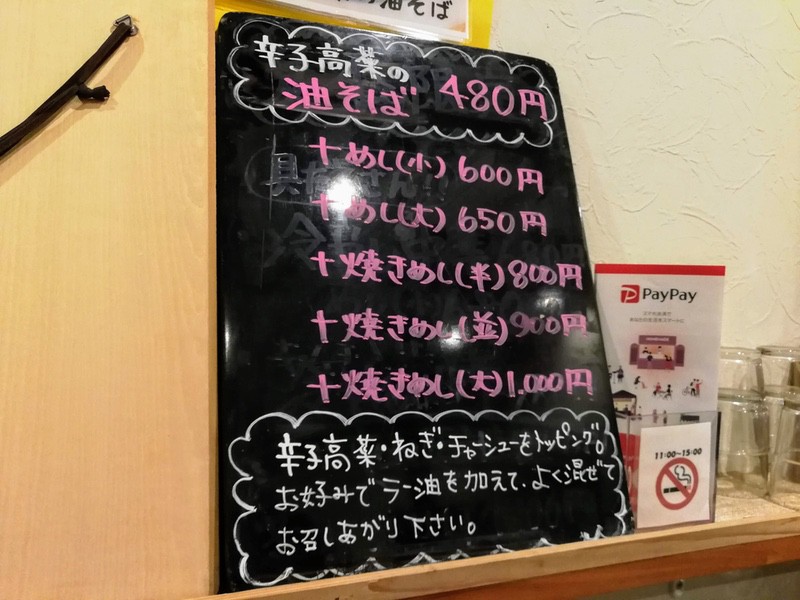 油そば
辛子高菜の
油そば 480円
十めし(小) 600円
十めし(大) 650円
十焼きめし(半) 800円
十焼きめし(並) 900円
十焼きめし(大) 1.000円
辛子高菜・ねぎ・チャーシューをトッピング。
お好みでラー油を加えて、よく混ぜて
お召しあがり下さい。
PayPay
スマホ決済で
あなたのお支払をスマートに
11:00~15:00